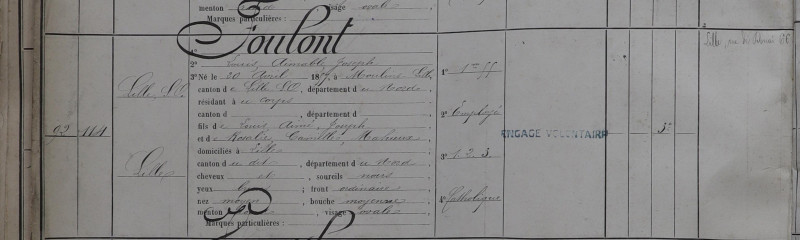 menton , visage ovale
Marques particulières :
Foulont
1°
2° Louis, Aimable, Joseph
3° Né le 20 Avril 187, à Moulins Lille
canton de Lille S.O., département du Nord
résidant à u corps
canton d , département d
fils de Louis, Aimé, Joseph
et de Rosalie, Camille,
domiciliés à Lille
canton du dit , département du Nord
cheveux et , sourcils noirs
yeux ; front ordinaire
nez moyen , bouche moyenne
menton , visage ovale
Marques particulières :
92
114
Lille S.O.
Lille
1°
2° Employé
3° 1 2 3
4° Catholique
ENGAGE VOLONTAIRE
5°
Lille, rue